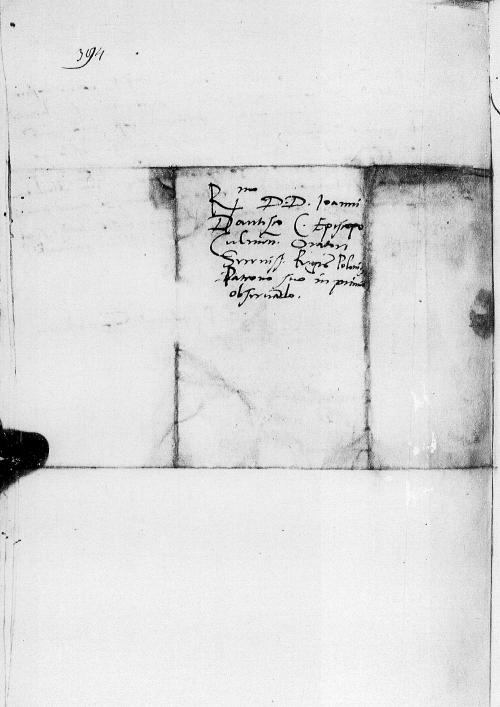 394
R.mo D. D. Ioanni
Dantisco C. Episcopo
Culmen. Oratori
Sereniss. Regis Poloni.
Patrono suo in primis
observando.